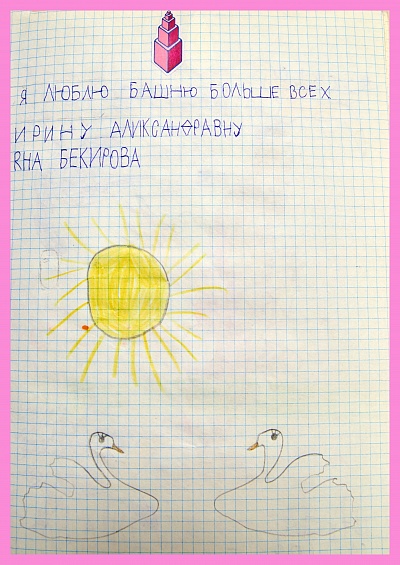 Я ЛЮБЛЮ БАШНЮ БОЛЬШЕ ВСЕХ
ИРИНУ АЛИКСАНФРАВНУ
ЯНА БЕКИРОВА